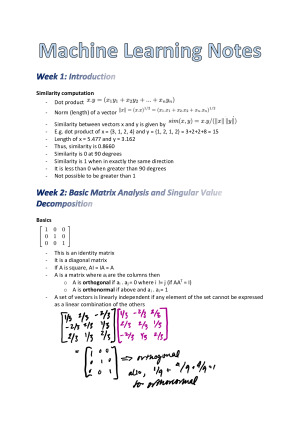 Machine Learning Notes
Week 1: Introduction
Similarity computation
- Dot product x.y = (x₁y₁ + x₂y₂ + ... + xₙyₙ)
- Norm (length) of a vector
- Similarity between vectors x and y is given by sim(x, y) = x.y/(||x|| ||y||)
- E.g. dot product of x = (3, 1, 2, 4) and y = (1, 2, 1, 2) = 3+2+2+8 = 15
- Length of x = 5.477 and y = 3.162
- Thus, similarity is 0.8660
- Similarity is 0 at 90 degrees
- Similarity is 1 when in exactly the same direction
- It is less than 0 when greater than 90 degrees
- Not possible to be greater than 1
Week 2: Basic Matrix Analysis and Singular Value
Decomposition
Basics
1 0 0
0 1 0
0 0 1
- This is an identity matrix
- It is a diagonal matrix
- If A is square, AI = IA = A
- A is a matrix where aᵢ are the columns then
o A is orthogonal if aᵢ . aⱼ = 0 where i != j (If AAᵀ = I)
o A is orthonormal if above and aᵢ . aᵢ = 1
- A set of vectors is linearly independent if any element of the set cannot be expressed
as a linear combination of the others
1/3 2/3 -2/3 1/3 -2/3 2/3
-2/3 2/3 1/3 2/3 2/3 1/3
2/3 1/3 2/3 -2/3 1/3 2/3
= 1 0 0
0 1 0 => orthogonal
0 0 1 also, 1/9 + 4/9 + 4/9 = 1
so orthonormal